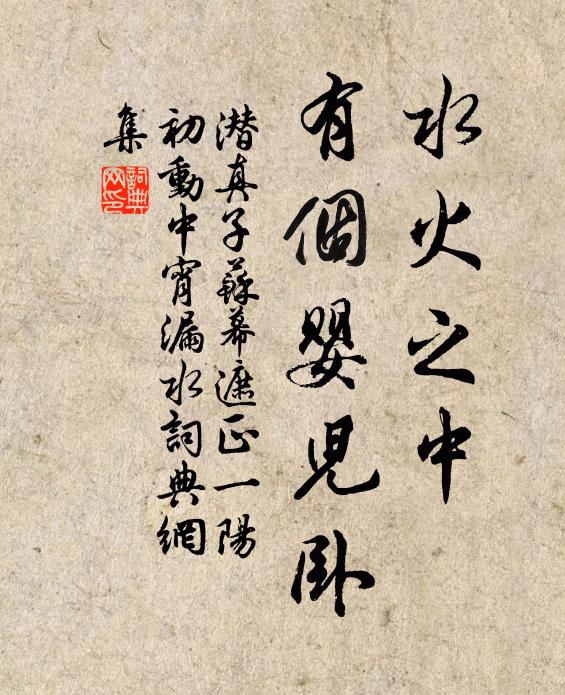 水火之中
有個嬰兒臥
潛真子蘇幕遮正一陽
初動中宵漏水詞典網
集
詞典
网印